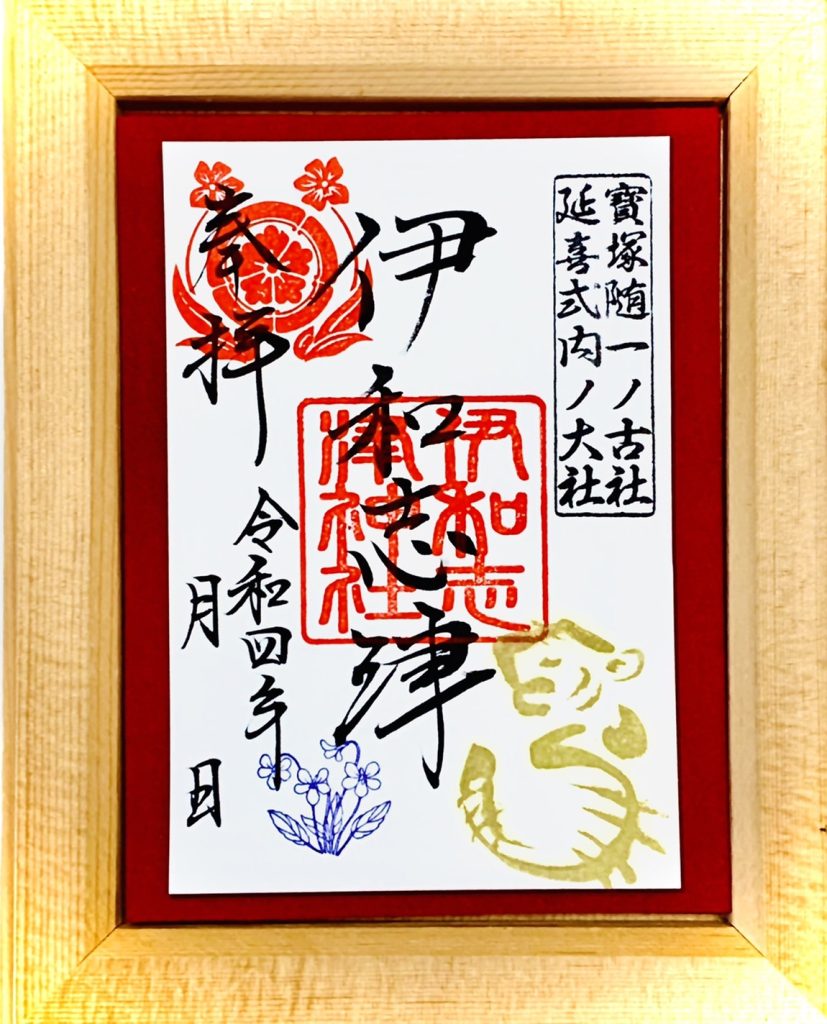 寳塚随一ノ古社
延喜式内ノ大社
伊和志津
伊和志
津神社
奉拝
令和四年
月　日